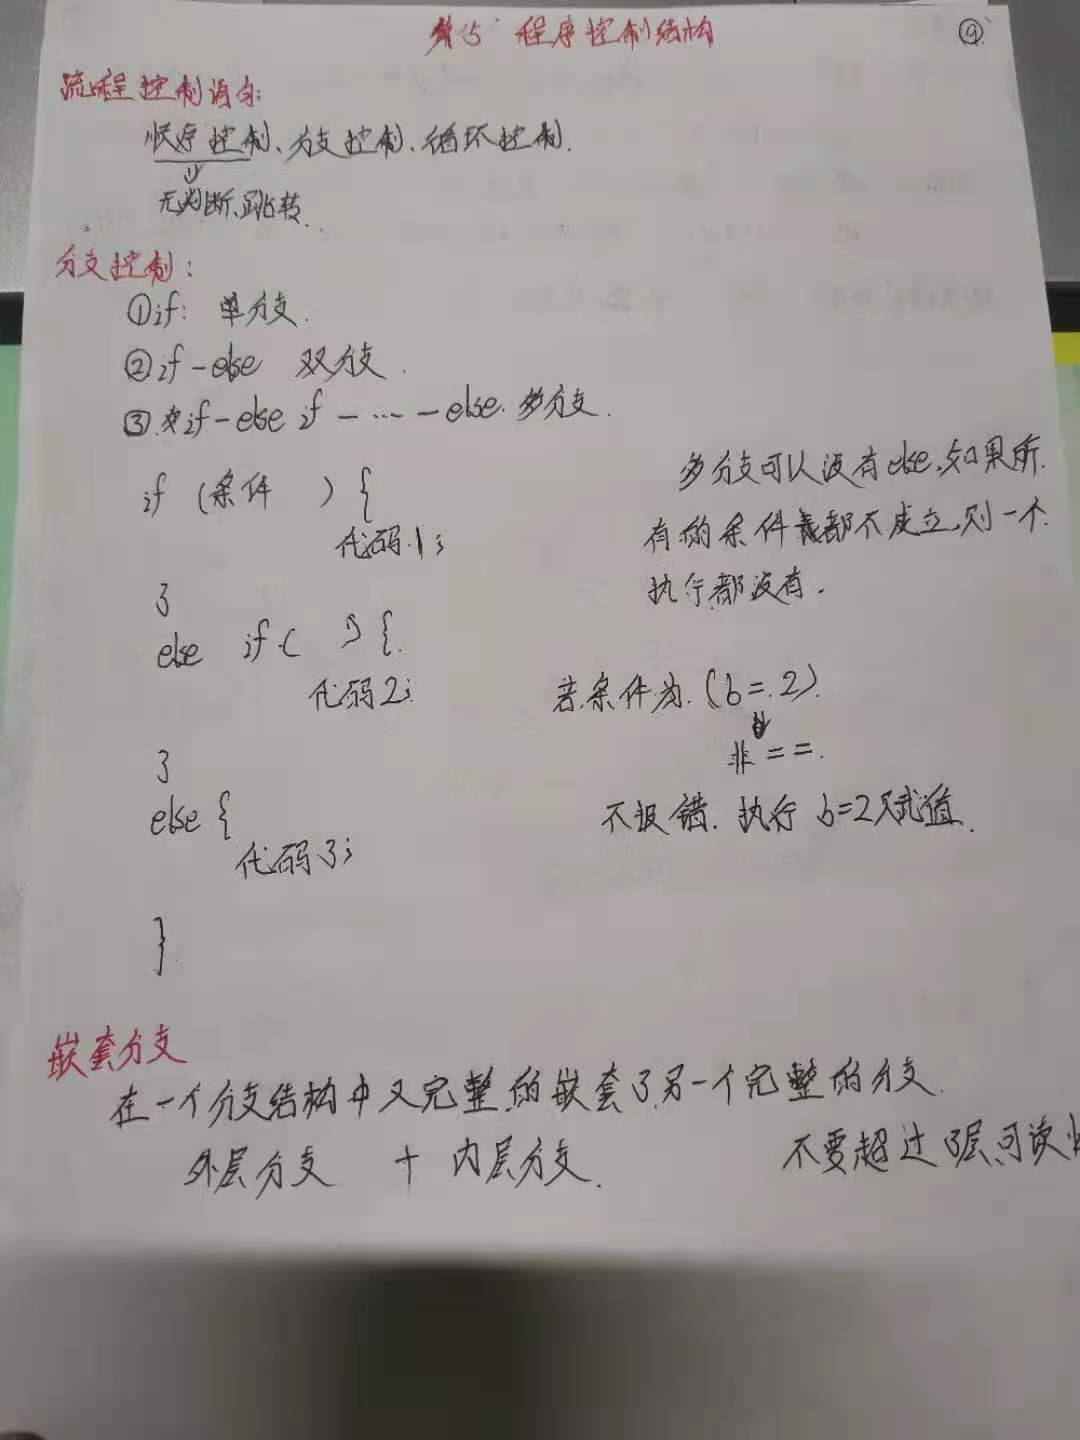 第5 程序控制结构 ⑨
流程控制语句:
顺序控制、分支控制、循环控制.
无判断、跳转.
分支控制:
①if: 单分支.
②if-else 双分支.
③.if-else if - ... - else. 多分支.
if (条件 ) {
代码1;
}
else if ( ) {
代码2;
}
else {
代码3;
}
多分支可以没有else,如果所
有的条件都不成立,则一个
执行都没有.
若条件为.(b = 2).
非 ==.
不报错. 执行 b=2 赋值.
嵌套分支
在一个分支结构中又完整的嵌套了另一个完整的分支.
外层分支 + 内层分支. 不要超过3层,可读